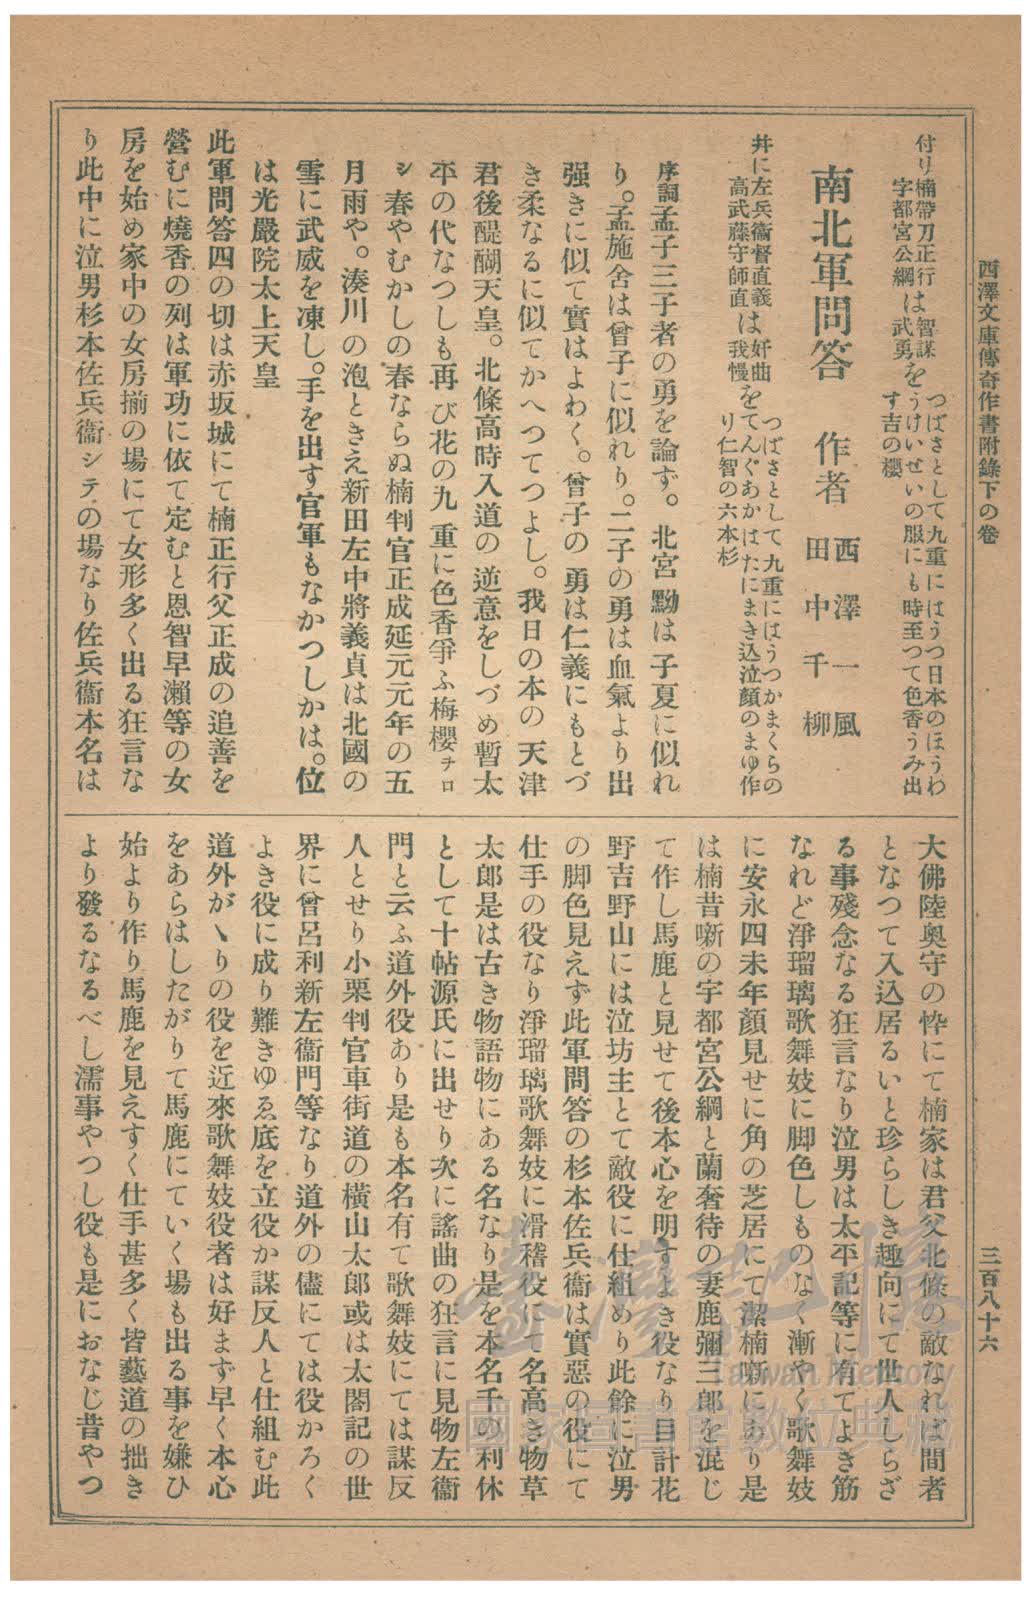 西澤文庫傳奇作書附錄下の卷
三百八十六
付リ楠帶刀正行は智謀
宇都宮公綱は武勇を
つばさとして九重にはうつ日本のほうわ
うけいせいの服にも時至つて色香うみ出
す吉の櫻
南北軍問答 作者 西澤一風
田中千柳
井に左兵衞督直義は奸曲
高武藏守師直は我慢を
つばさとして九重にはうつかまくらの
てんぐあかはたにまき込泣顏のまゆ作
り仁智の六本杉
序詞孟子三子者の勇を論ず。北宮黝は子夏に似れ
り。孟施舍は曾子に似れり。二子の勇は血氣より出
强きに似て實はよわく。曾子の勇は仁義にもとづ
き柔なるに似てかへつてつよし。我日の本の天津
君後醍醐天皇。北條高時入道の逆意をしづめ暫太
平の代なつしも再び花の九重に色香爭ふ梅櫻チロ
シ春やむかしの春ならぬ楠判官正成延元元年の五
月雨や。湊川の泡ときえ新田左中將義貞は北國の
雪に武威を凍し。手を出す官軍もなかつしかは。位
は光嚴院太上天皇
此軍問答四の切は赤坂城にて楠正行父正成の追善を
營むに燒香の列は軍功に依て定むと恩智早瀨等の女
房を始め家中の女房揃の場にて女形多く出る狂言な
り此中に泣男杉本佐兵衞シテの場なり佐兵衞本名は
大佛陸奧守の忰にて楠家は君父北條の敵なれば間者
となつて入込居るいと珍らしき趣向にて世人しらざ
る事殘念なる狂言なり泣男は太平記等に有てよき筋
なれど淨瑠璃歌舞妓に脚色しものなく漸やく歌舞妓
に安永四未年顏見せに角の芝居にて潔楠噺にあり是
は楠昔噺の宇都宮公綱と蘭奢待の妻鹿彌三郎を混じ
て作し馬鹿と見せて後本心を明すよき役なり目計花
野吉野山には泣坊主とて敵役に仕組めり此餘に泣男
の脚色見えず此軍問答の杉本佐兵衞は實惡の役にて
仕手の役なり淨瑠璃歌舞妓に滑稽役にて名高き物草
太郎是は古き物語物にある名なり是を本名千の利休
として十帖源氏に出せり次に謠曲の狂言に見物左衞
門と云ふ道外役あり是も本名有て歌舞妓にては謀反
人とせり小栗判官車街道の橫山太郎或は太閤記の世
界に曾呂利新左衞門等なり道外の儘にては役かろく
よき役に成り難きゆゑ底を立役か謀反人と仕組む此
道外がゝりの役を近來歌舞妓役者は好まず早く本心
をあらはしたがりて馬鹿にていく場も出る事を嫌ひ
始より作り馬鹿を見えすく仕手甚多く皆藝道の拙き
より發るなるべし濡事やつし役も是におなじ昔やつ
臺灣記憶
Taiwan Memory
國家圖書館數位典藏